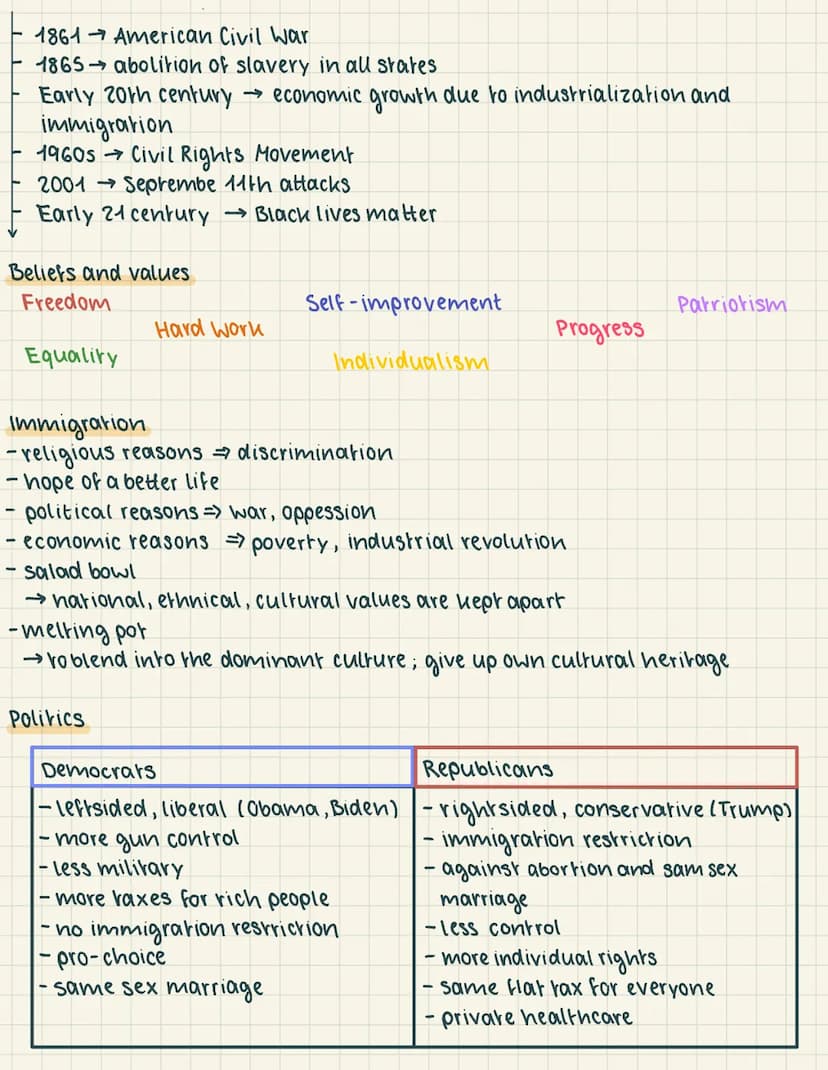 - 1861 → American Civil War
- 1865 → abolition of slavery in all states
- Early 20th century → economic growth due to industrialization and
immigration
- 1960s → Civil Rights Movement
- 2001 → Septembe 11th attacks
- Early 21 century → Black lives matter
Beliefs and values
Freedom Self-improvement Patriotism
Hard Work Progress
Equality Individualism
Immigration
- religious reasons ⇒ discrimination
- hope of a better life
- political reasons ⇒ war, oppession
- economic reasons ⇒ poverty, industrial revolution
- salad bowl
→ national, ethnical, cultural values are kept apart
- melting pot
→ to blend into the dominant culture; give up own cultural heritage
Politics
Democrats
- leftsided, liberal (Obama, Biden)
- more gun control
- less military
- more taxes for rich people
- no immigration restriction
- pro-choice
- same sex marriage
Republicans
- rightsided, conservative (Trump)
- immigration restriction
- against abortion and sam sex
marriage
- less control
- more individual rights
- same flat tax for everyone
- private healthcare